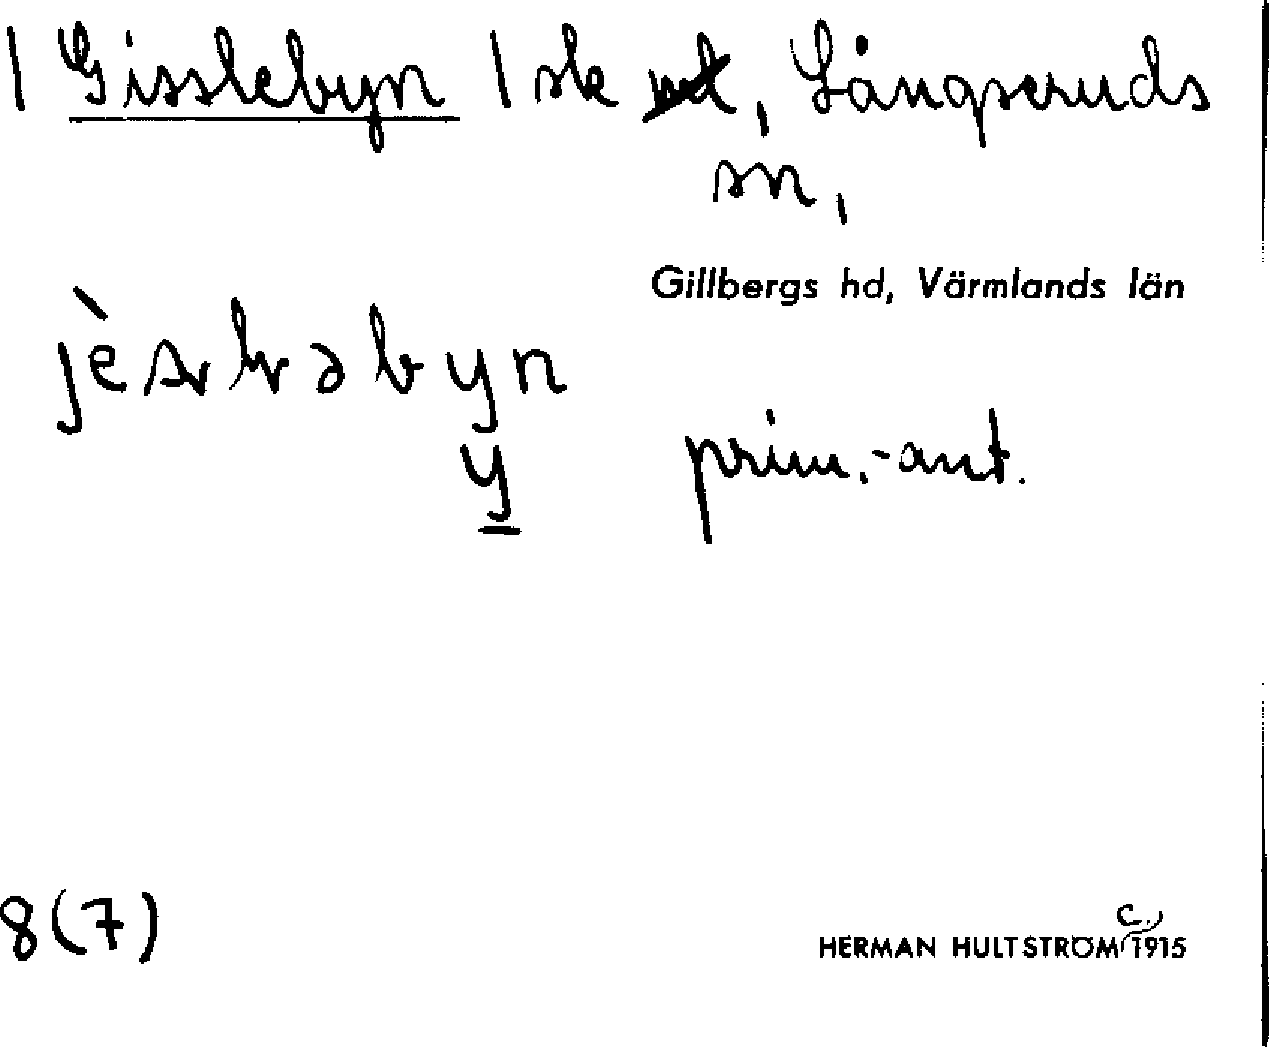 | Gisslebyn | ske, Långseruds
sn,
Gillbergs hd, Värmlands län
jèslləbyn
y
prim.-ant.
8(7)
c.
HERMAN HULTSTRÖM 1915